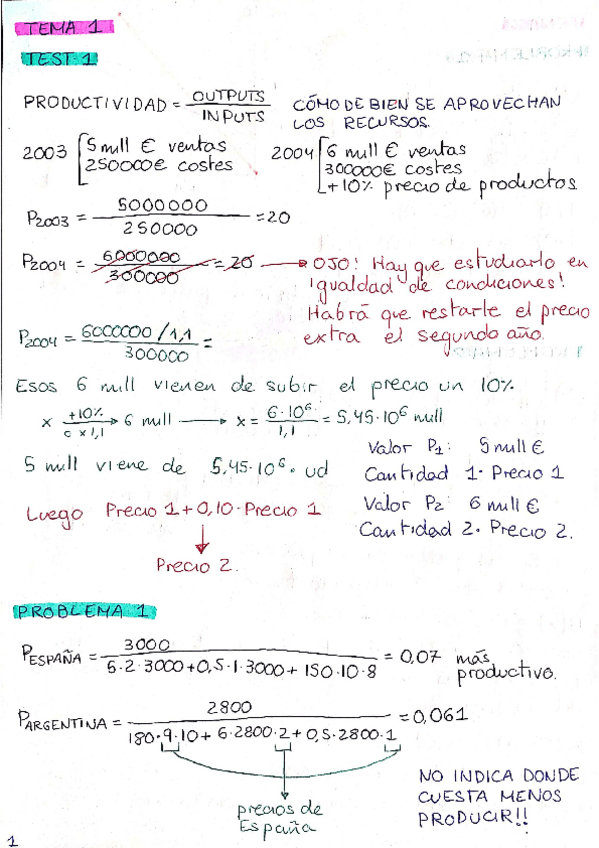 TEMA 1
TEST 1
PRODUCTIVIDAD = OUTPUTS / INPUTS CÓMO DE BIEN SE APROVECHAN
LOS RECURSOS.
2003 [ 5 mill € ventas
250000€ costes
2004 [ 6 mill € ventas
300000€ costes
+10% precio de productos
P2003 = 5000000 / 250000 = 20
P2004 = 6000000 / 300000 = 20 → OJO! Hay que estudiarlo en
igualdad de condiciones!
Habrá que restarle el precio
extra el segundo año.
P2004 = 6000000/1,1 / 300000 =
Esos 6 mill vienen de subir el precio un 10%
x +10% / o x1,1 → 6 mill → x = 6·10⁶ / 1,1 = 5,45·10⁶ mill
5 mill viene de 5,45·10⁶ · ud
Luego Precio 1 + 0,10 · Precio 1
↓
Precio 2.
Valor P1: 5 mill €
Cantidad 1 · Precio 1
Valor P2: 6 mill €
Cantidad 2 · Precio 2.
PROBLEMA 1
PESPAÑA = 3000 / 6·2·3000+0,5·1·3000+150·10·8 = 0,07 más
productivo.
PARGENTINA = 2800 / 180·9·10+6·2800·2+0,5·2800·1 = 0,061
precios de
España
NO INDICA DONDE
CUESTA MENOS
PRODUCIR!!
1